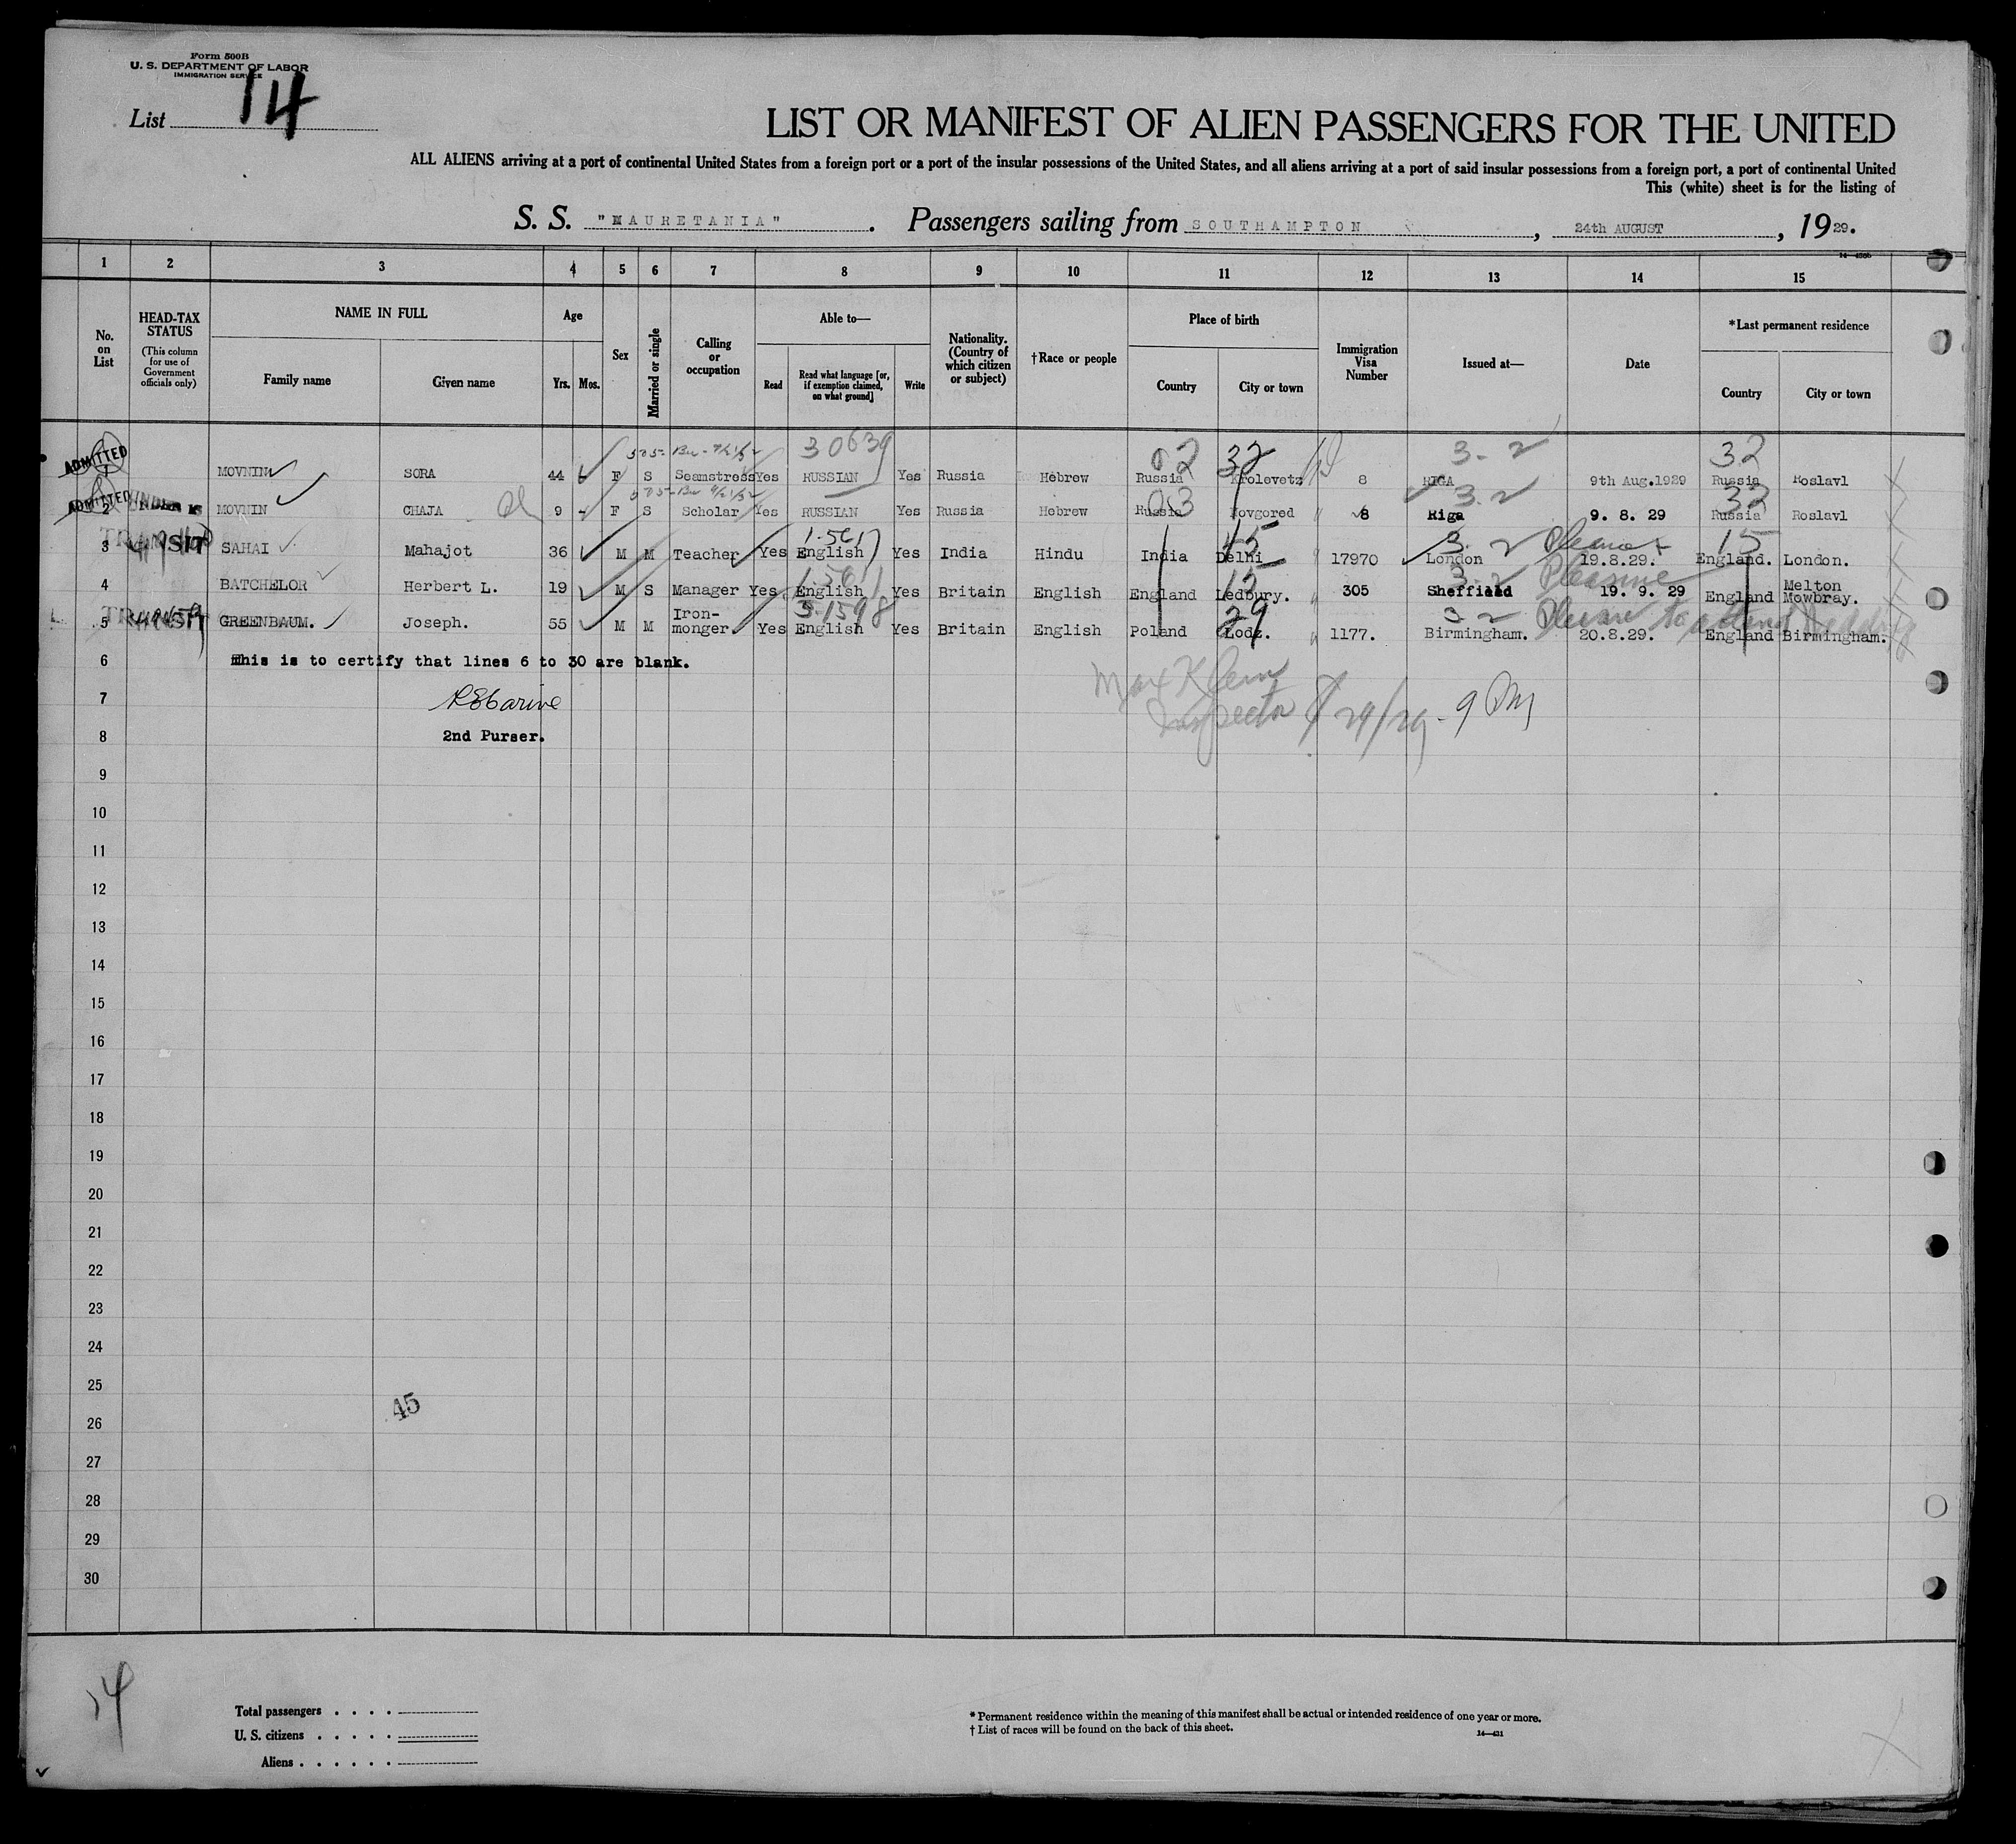 Form 500B
U. S. DEPARTMENT OF LABOR
IMMIGRATION SERVICE
List 14
LIST OR MANIFEST OF ALIEN PASSENGERS FOR THE UNITED
ALL ALIENS arriving at a port of continental United States from a foreign port or a port of the insular possessions of the United States, and all aliens arriving at a port of said insular possessions from a foreign port, a port of continental United
This (white) sheet is for the listing of
S. S. "MAURETANIA". Passengers sailing from SOUTHAMPTON, 24th AUGUST, 1929.
1 2 3 4 5 6 7 8 9 10 11 12 13 14 15
No. on List
HEAD-TAX STATUS
(This column for use of Government officials only)
NAME IN FULL
Family name
Given name
Age
Yrs.
Mos.
Sex
Married or single
Calling or occupation
Able to—
Read
Read what language [or, if exemption claimed, on what ground]
Write
Nationality. (Country of which citizen or subject)
†Race or people
Place of birth
Country
City or town
Immigration Visa Number
Issued at—
Date
*Last permanent residence
Country
City or town
30639 02 32 3-2 32
ADMITTED 1 MOVNIN SORA 44 F S Seamstress Yes RUSSIAN Yes Russia Hebrew Russia Krolevetz 8 RIGA 9th Aug.1929 Russia Roslavl
03 3.2 33
ADMITTED UNDER 16 2 MOVNIN CHAJA 9 - F S Scholar Yes RUSSIAN Yes Russia Hebrew Russia Novgored 8 Riga 9. 8. 29 Russia Roslavl
1-561 15 3-2 15
3 TRANSIT SAHAI Mahajot 36 M M Teacher Yes English Yes India Hindu India Delhi 17970 London 19.8.29. England. London.
1-561 15 3-2 Pleasure
4 BATCHELOR Herbert L. 19 M S Manager Yes English Yes Britain English England Ledbury. 305 Sheffield 19. 9. 29 England Melton Mowbray.
3-1598 29 3-2 Pleasure to attend Wedding
5 TRANSIT GREENBAUM. Joseph. 55 M M Iron-monger. Yes English Yes Britain English Poland Lodz. 1177. Birmingham. 20.8.29. England Birmingham.
6 This is to certify that lines 6 to 30 are blank.
Max Klein
Inspector 8/29/29 - 9 PM
7
8 2nd Purser.
9
10
11
12
13
14
15
16
17
18
19
20
21
22
23
24
25
45
26
27
28
29
30
14
Total passengers . . . .
U. S. citizens . . . . .
Aliens . . . . . .
* Permanent residence within the meaning of this manifest shall be actual or intended residence of one year or more.
† List of races will be found on the back of this sheet.
14—431